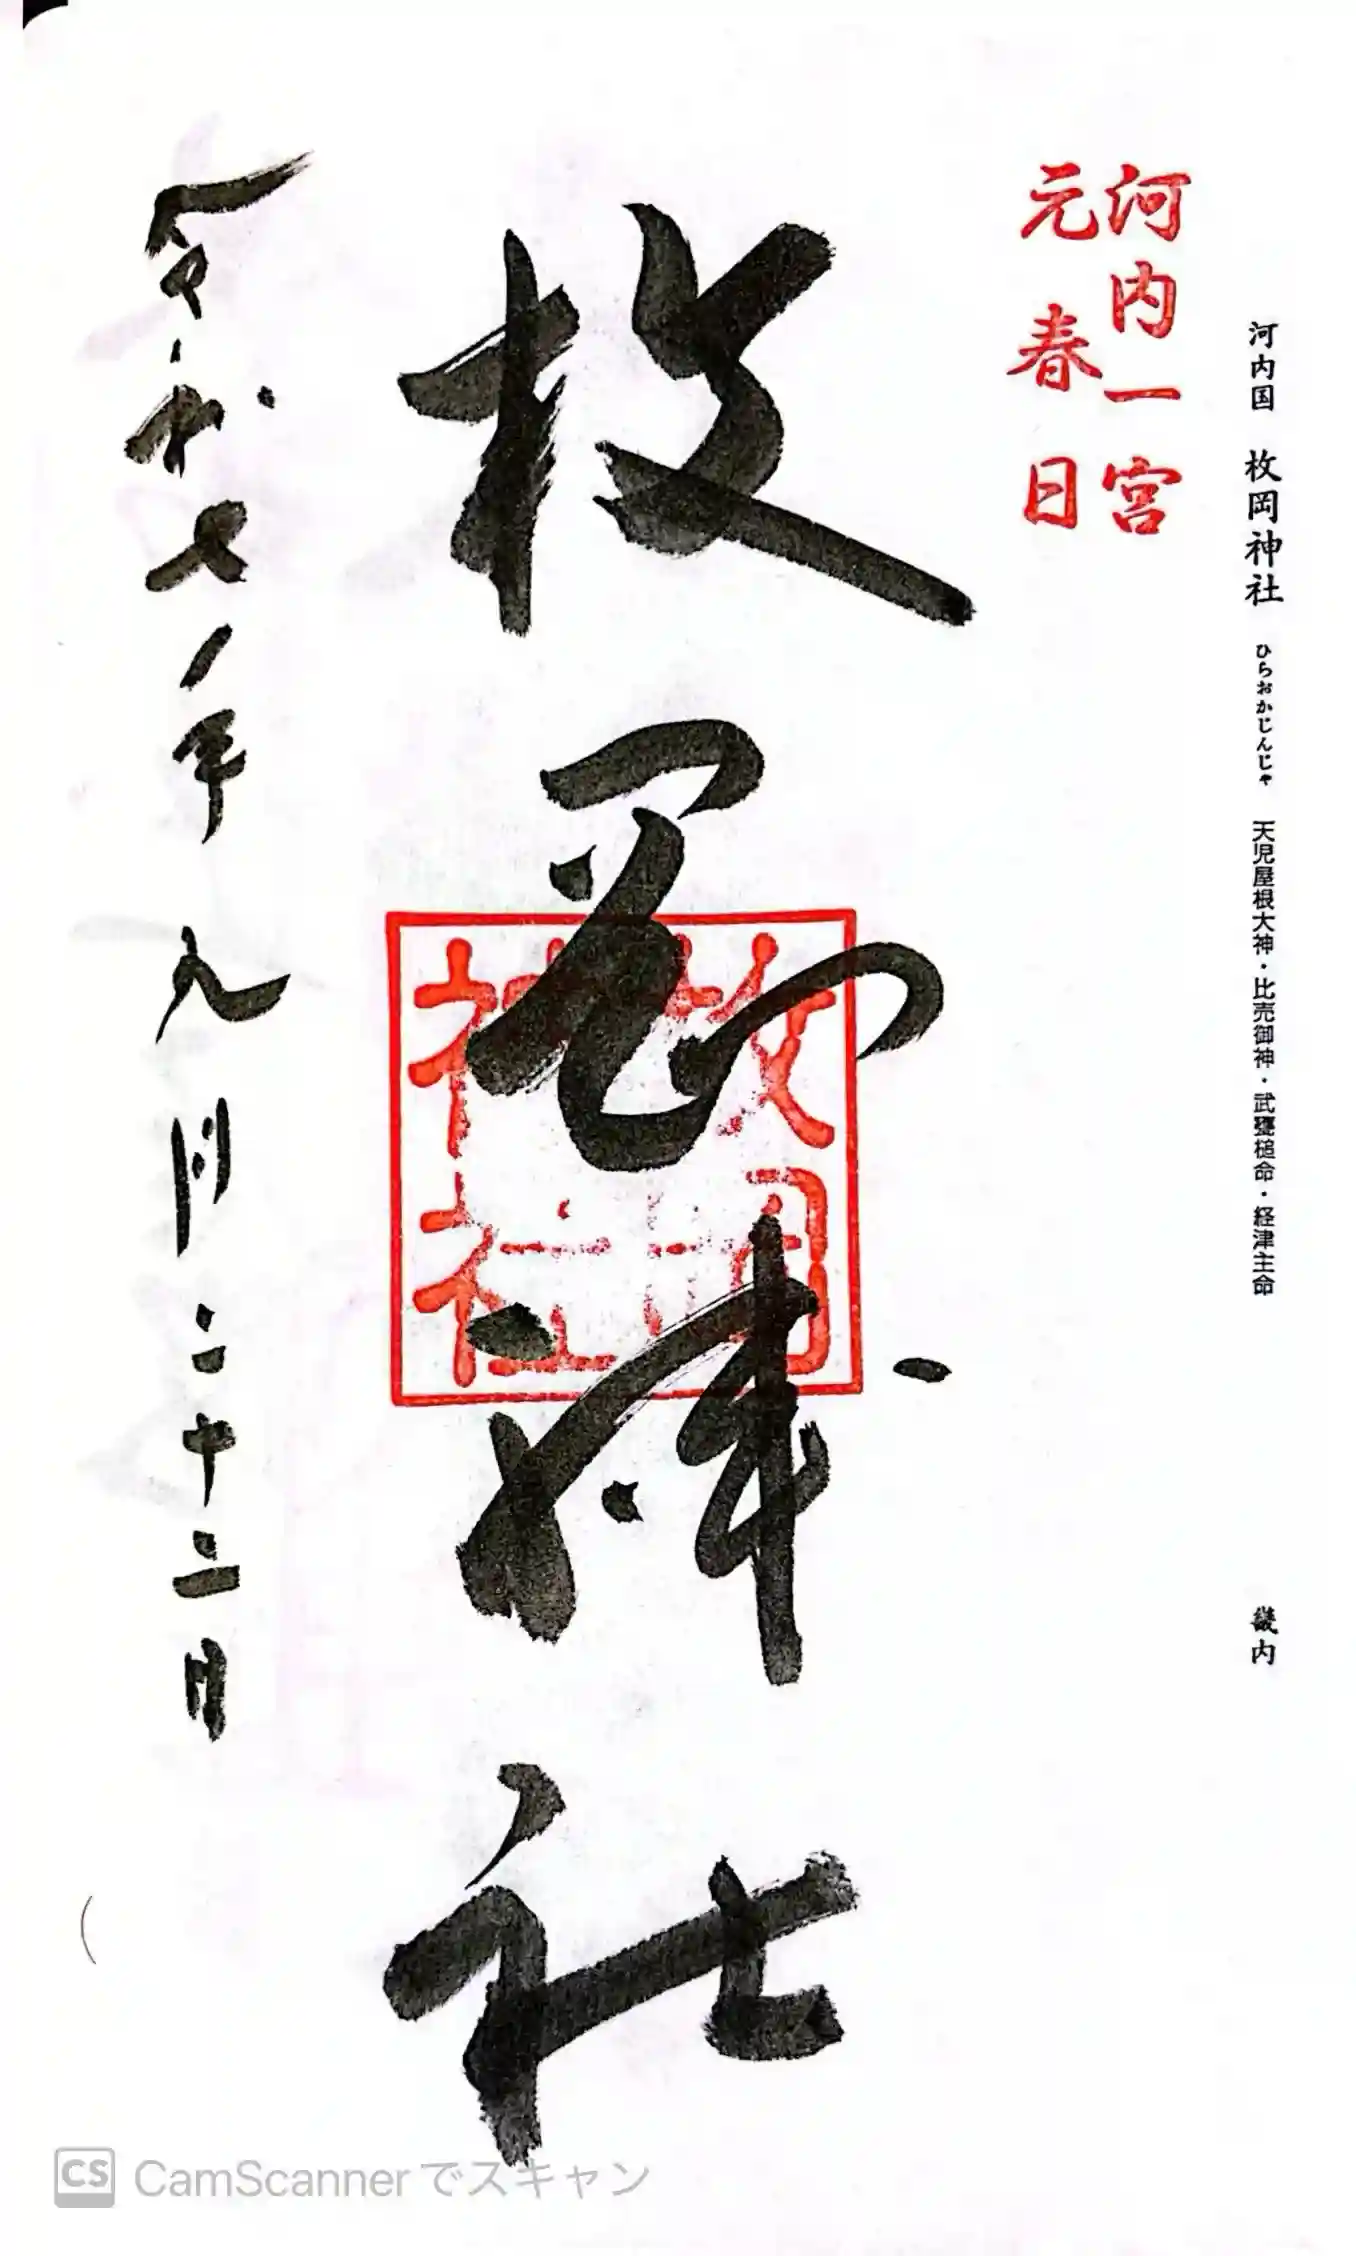 河内国 枚岡神社 ひらおかじんじゃ 天児屋根大神・比売御神・武甕槌命・経津主命 畿内
河内一宮
元春日
枚岡神社
枚岡
神社
令和七年九月二十二日
CS CamScannerでスキャン